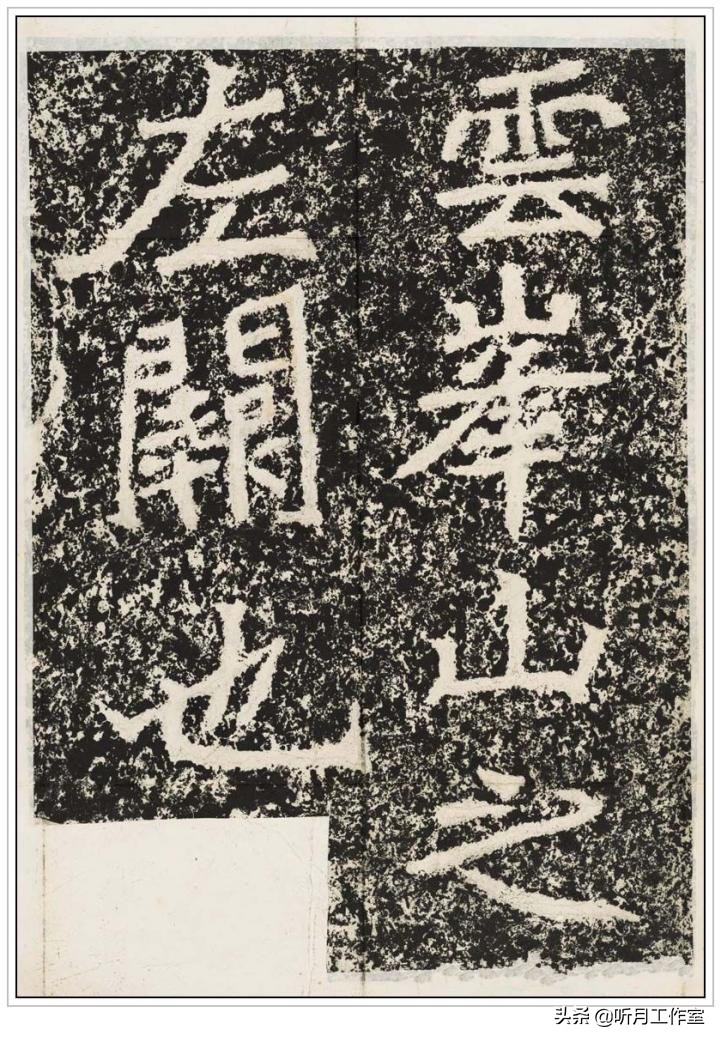 雲峯山之
左闕也
头条 @听月工作室